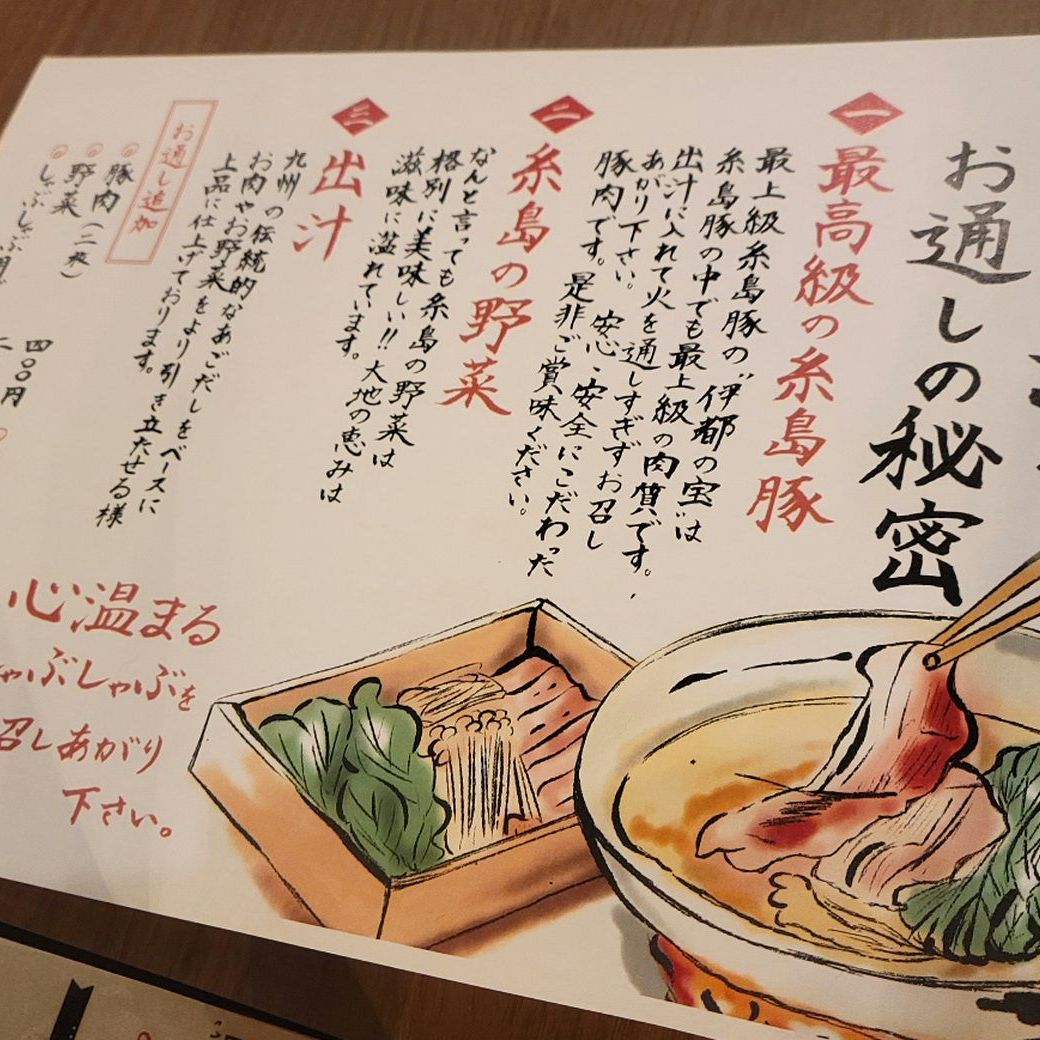 お通しの秘密
一
最高級の糸島豚
最上級糸島豚の“伊都の宝”は
糸島豚の中でも最上級の肉質です。
出汁に入れて火を通しすぎずお召し
あがり下さい。安心、安全にこだわった
豚肉です。是非ご賞味ください。
二
糸島の野菜
なんと言っても糸島の野菜は
格別に美味しい!!大地の恵みは
滋味に溢れています。
三
出汁
九州の伝統的なあごだしをベースに
お肉やお野菜をより引き立たせる様
上品に仕上げております。
お通し追加
豚肉(二枚)
野菜
しゃぶしゃぶ用
四〇〇円
心温まる
ゃぶしゃぶを
召しあがり
下さい。